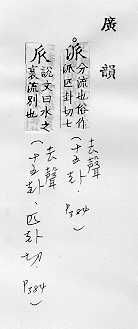 廣韻
派分流也俗作
派匹卦切七
去聲
(十五卦)
P384
𠂢說文曰水之
衺流別也
去聲
(十五卦、匹卦切)
P384